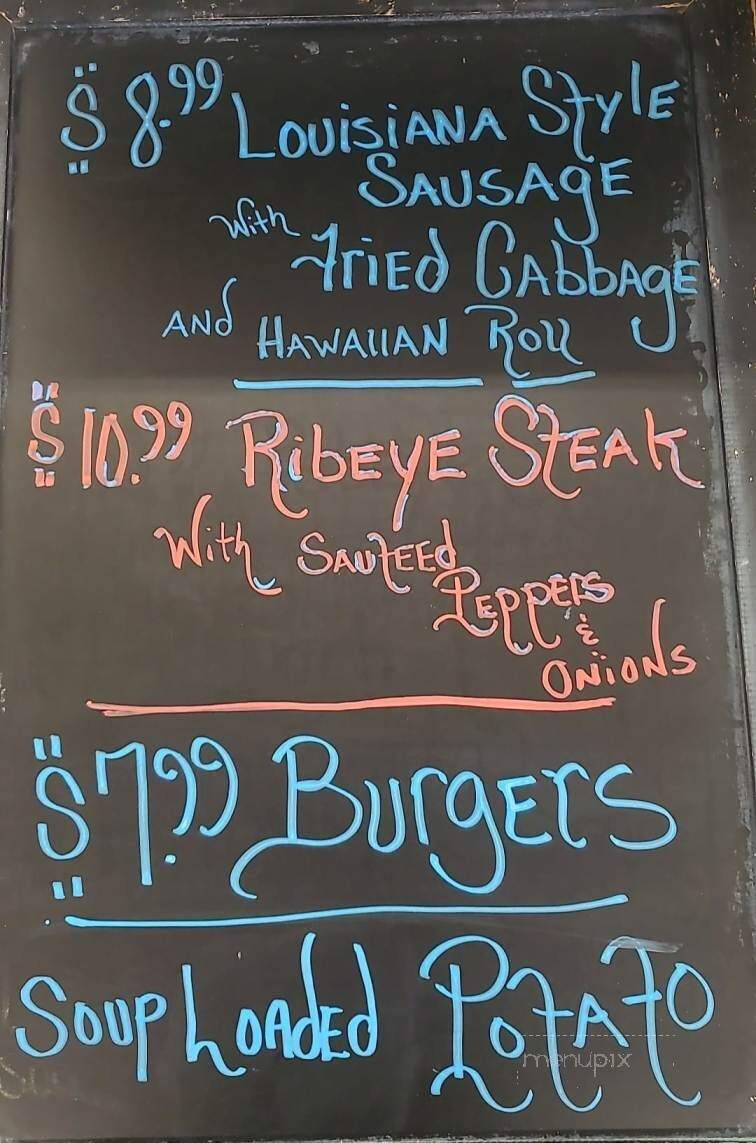 $8.99 Louisiana Style
Sausage
With Fried Cabbage
And Hawaiian Roll
$10.99 Ribeye Steak
With Sauteed
Peppers
&
Onions
$7.99 Burgers
Soup Loaded Potato
menupix